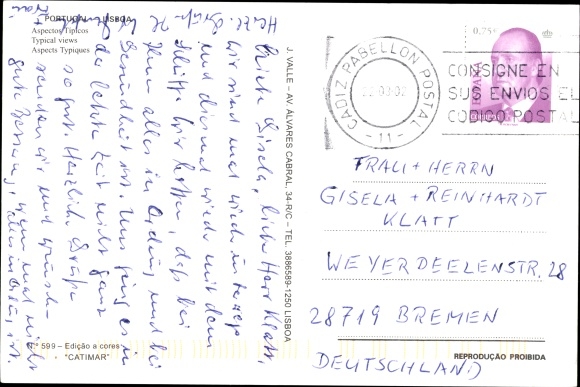 PORTUGAL - LISBOA
Aspectos Típicos
Typical views
Aspects Typiques
Herzl. Grüße
Liebe Gisela, lieber Herr Klatt,
wir sind mal wieder in
und diesmal wieder mit dem
Schiff. Wir hoffen, daß bei
Ihnen alles in Ordnung und bei
Gesundheit ist. Uns ging es in
der letzten Zeit nicht ganz
so gut. Herzliche Grüße
senden wir und wünschen
gute Besserung, wenn mal nicht
alles in Ordn. ist.
n.º 599 – Edição a cores
"CATIMAR"
J. VALLE – AV. ALVARES CABRAL, 34-R/C – TEL. 3886589-1250 LISBOA
CADIZ PABELLON POSTAL
03-02
- 11 -
0,75€
CONSIGNE EN
SUS ENVIOS EL
CODIGO POSTAL
FRAU + HERRN
GISELA + REINHARDT
KLATT
WEYERDEELENSTR. 28
28719 BREMEN
DEUTSCHLAND
REPRODUÇÃO PROIBIDA